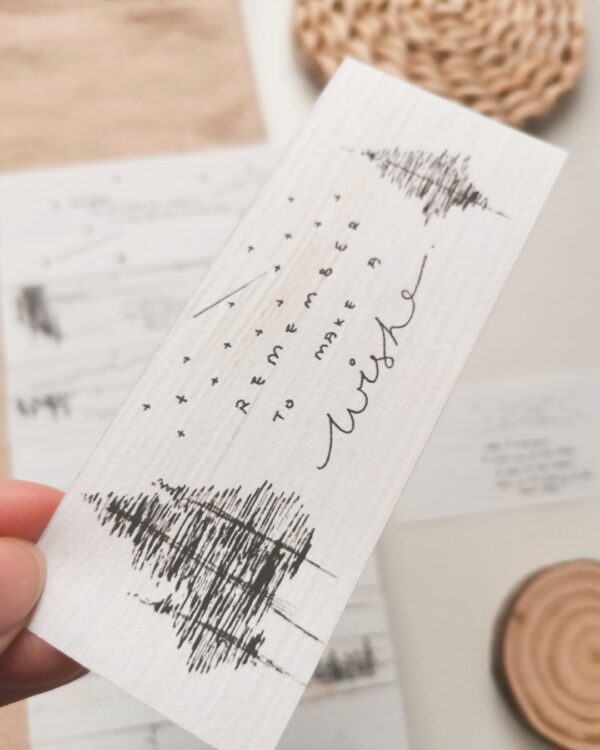 REMEMBER
TO MAKE A
wish